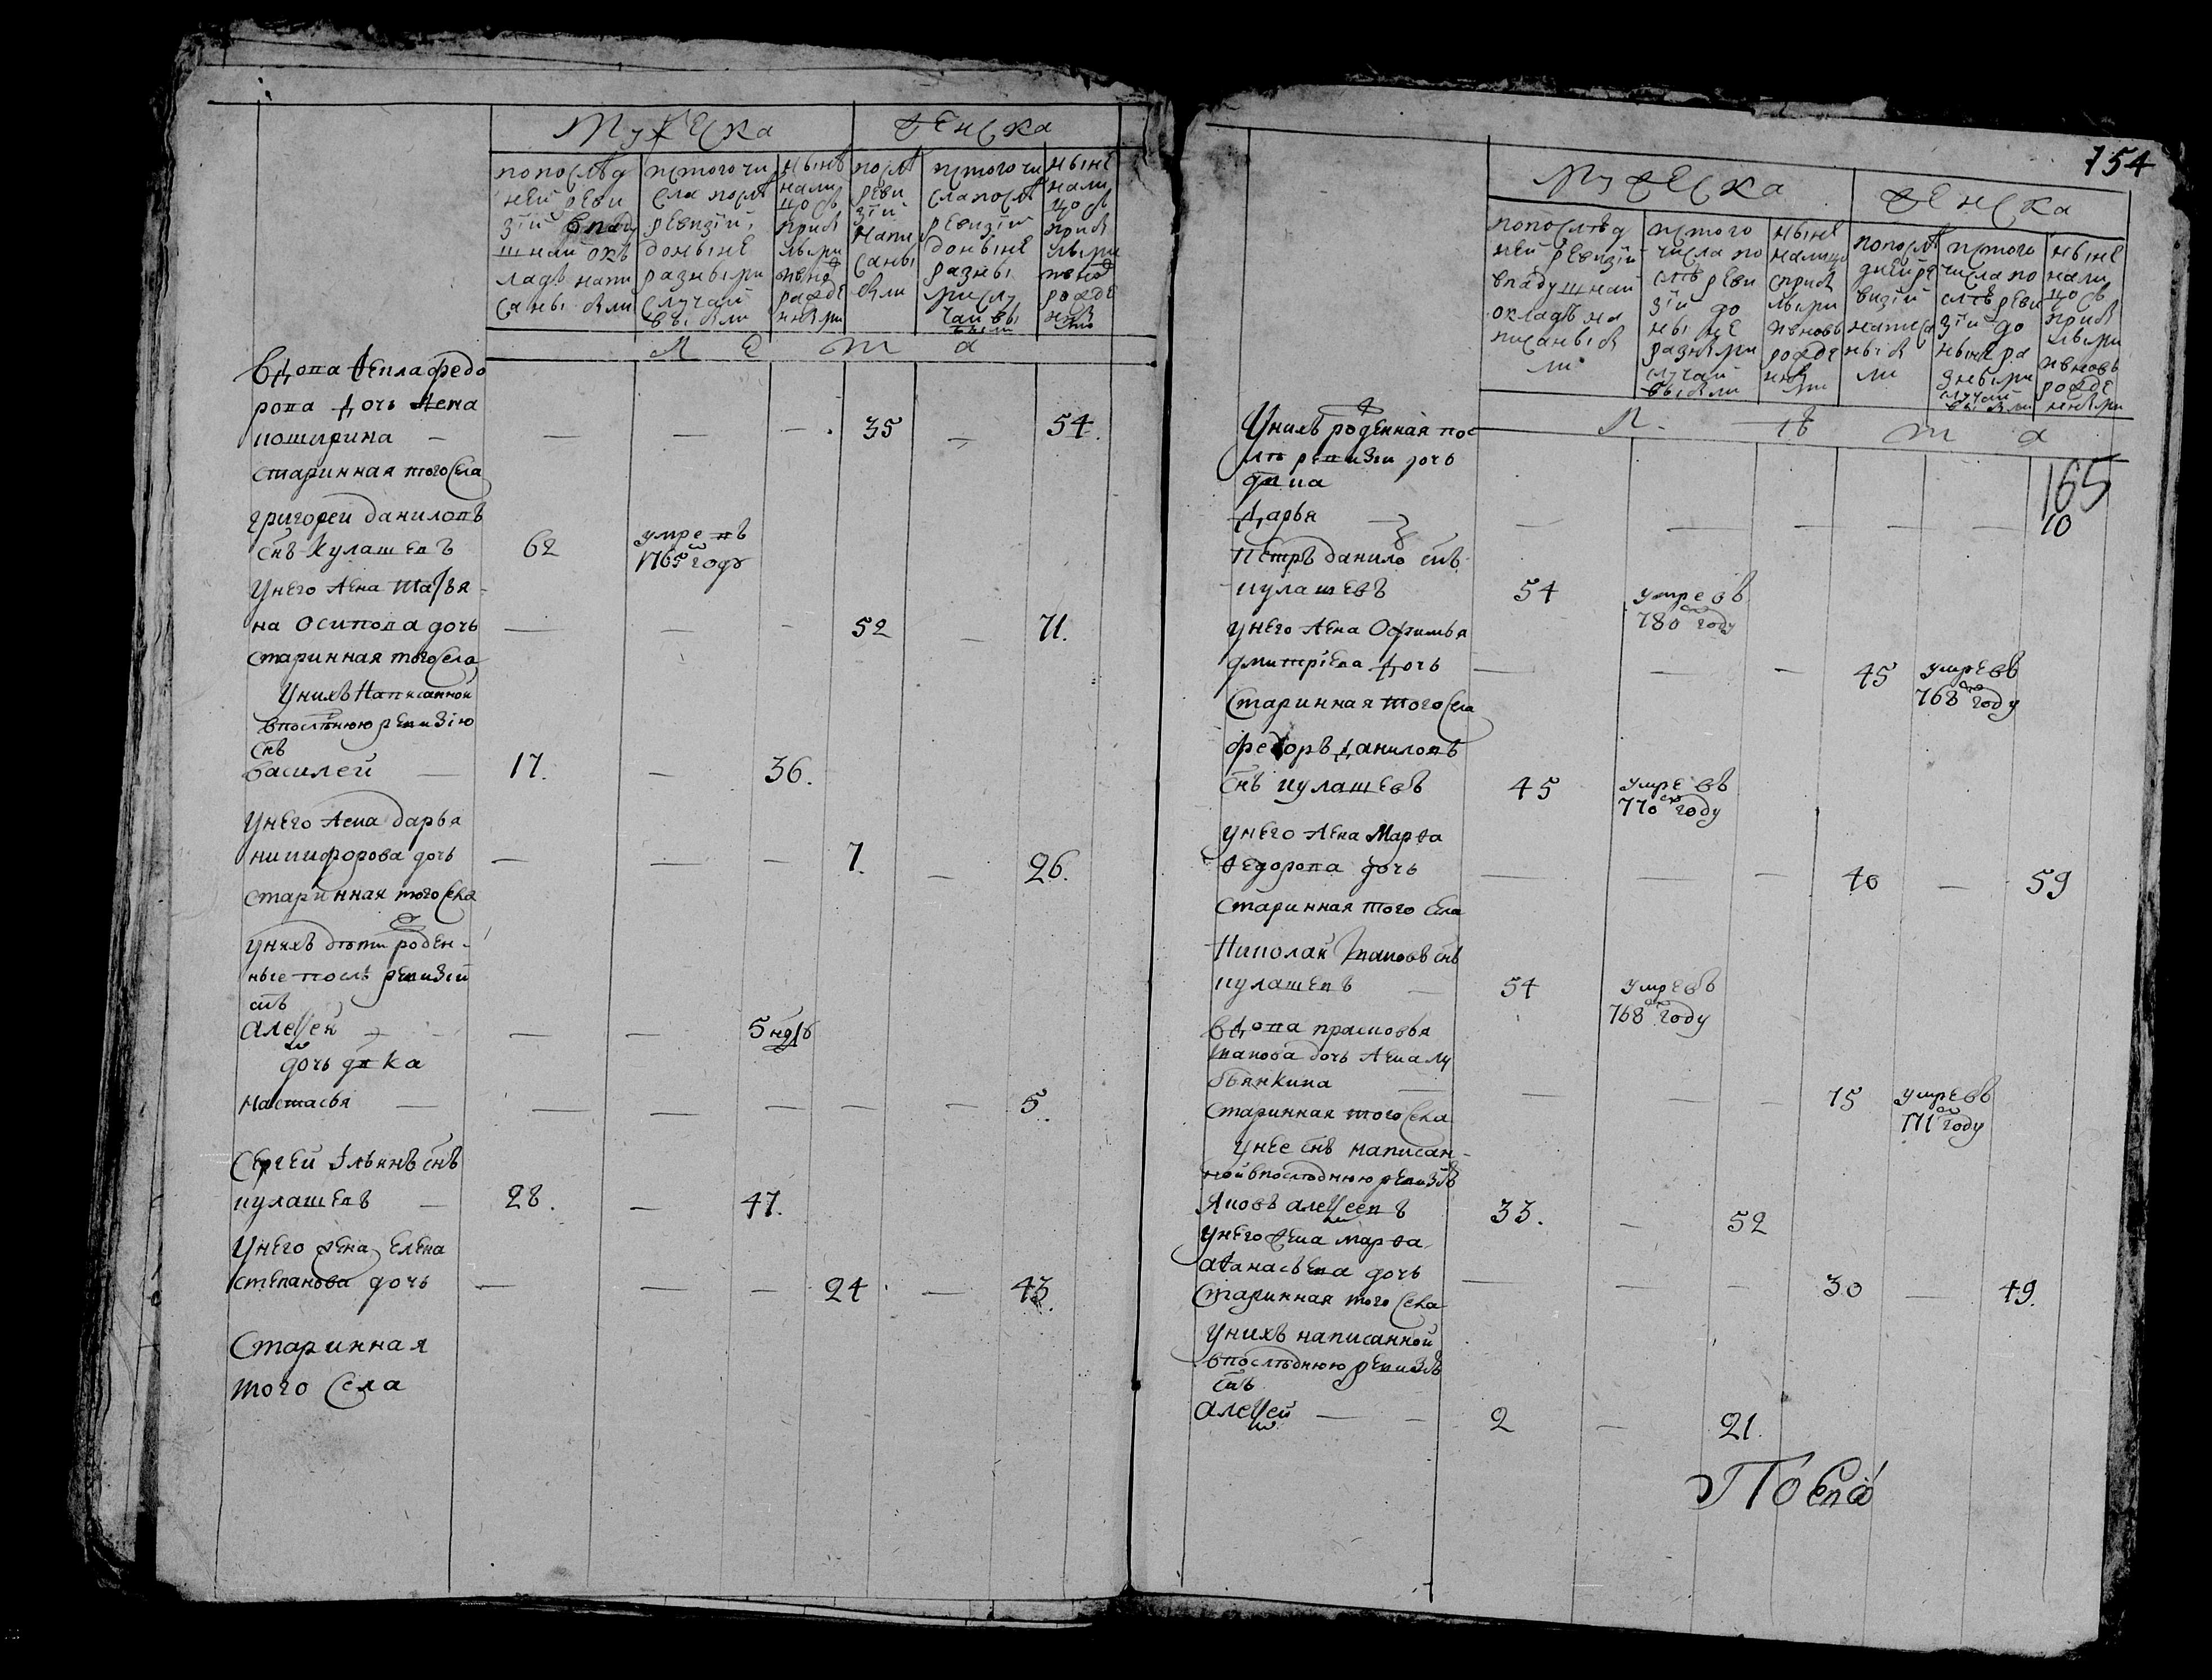 Мужеска
Женска
по послѣд
ней реви
зїи в поду
шнай окъ
ладъ напи
саны были
ис того чи
сла послѣ
ревизїи
до ныне
разными
случаи
выбыли
ныне
нали
цо съ
прибы
лыми
и внов
рожде
нными
послѣ
реви
зїи
напи
саны
были
ис того чи
сла послѣ
ревизїи
до ныне
разны
ми слу
чаи вы
были
ныне
нали
цо съ
прибы
лыми
и внов
рожде
нными
Л е т а
вдова Ѳекла федо
рова дочь жена
старинная того села
35 54.
григореи даниловъ
снъ Кулашевъ 62 умре въ
1765 году
у него жена Татья
на Осипова дочь 52 71.
старинная того села
у нихъ написанной
в послѣнюю ревизїю
снъ
василей 17. 36.
у него жена дарья
никифорова дочь 7. 26.
старинная того села
у нихъ дѣти рожден
ные послѣ ревизїи
снъ
алеѯей 5 ндль
дочь двка
настасья 5.
Сергей Ильинъ снъ
кулашевъ 28. 47.
у него жена Елена
степанова дочь 24 43.
Старинная
того села
154
Мужеска
Женска
по послѣд
ней ревизїи
в подушнай
окладъ на
писаны бы
ли
ис того
числа по
слѣ реви
зїи до
ны не
разными
случаи
выбыли
ныне
налицо
с прибы
лыми
и вновь
рожде
нны
ми
по послѣ
дней ре
визїи
написа
ны бы
ли
ис того
числа по
слѣ реви
зїи до
ныне ра
зными
случаи
выбыли
ныне
нали
цо съ
прибы
лыми
и вновь
рожде
нными
Л ѣ т а
165
У нихъ рожденная пос
лѣ ревизїи дочь
двка
дарья 10
петръ данило снъ
кулашевъ 54 умре въ
780 году
у него жена Офимья
дмитрїева дочь 45 умре въ
768 году
Старинная того села
федоръ даниловъ
снъ кулашевъ 45 умре въ
770 году
у него жена Марѳа
Ѳедорова дочь 40 59
старинная того села
Николай снъ
кулашевъ 54 умре въ
768 году
вдова прасковья
дочь жена
75 умре въ
771 году
старинная того села
у нее снъ написан
ной в послѣднюю ревизїю
Яковъ алеѯеевъ 33. 52
у него жена марѳа
аѳанасьева дочь 30 49.
Старинная того села
у нихъ написанной
в послѣднюю ревизїю
снъ
алеѯей 2 21.